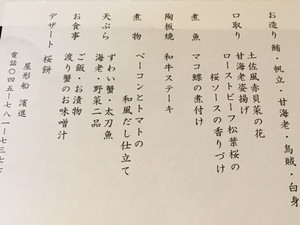 お造り 鮪・帆立・甘海老・烏賊・白身
口取り 土佐風赤貝菜の花
甘海老姿揚げ
ローストビーフ松葉桜の
桜ソースの香りづけ
煮魚 マコ鰈の煮付け
陶板焼 和牛ステーキ
煮物 ベーコンとトマトの
和風だし仕立て
天ぷら ずわい蟹・太刀魚
海老・野菜二品
お食事 ご飯・お漬物
渡り蟹のお味噌汁
デザート 桜餅
屋形船 濱進
電話〇四五ー七八一ー七三七七